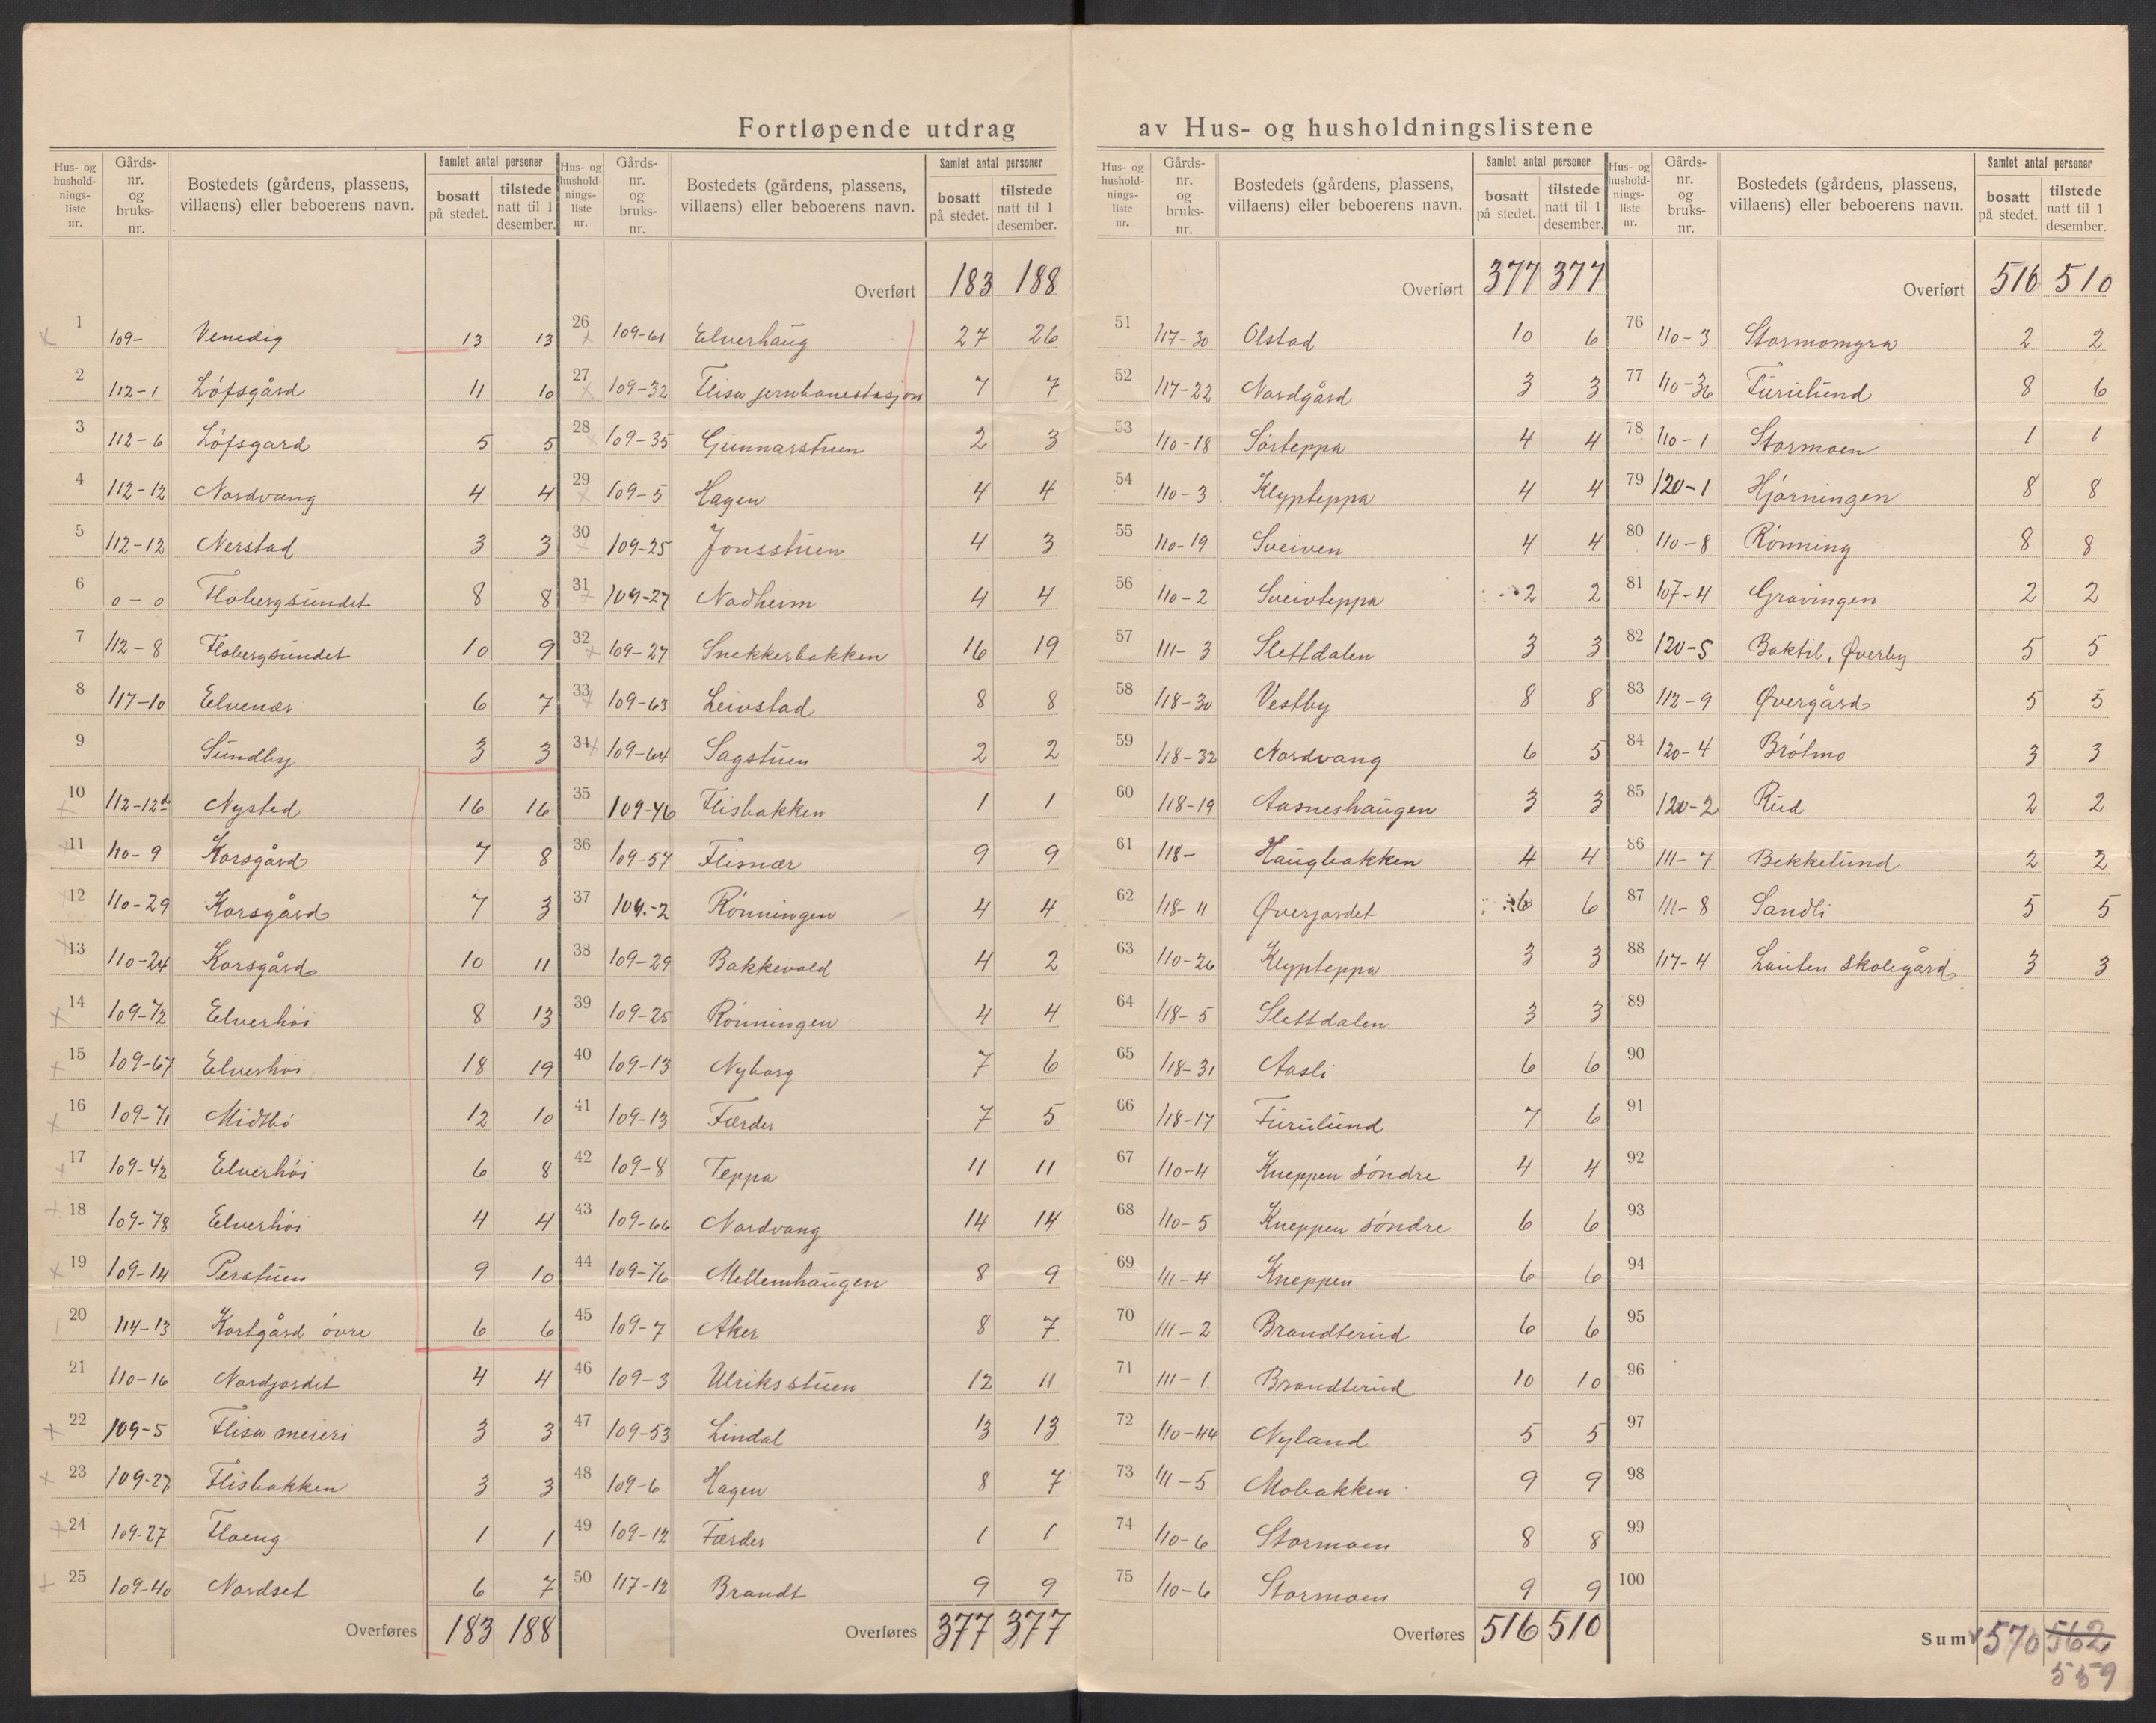 Fortløpende utdrag av Hus- og husholdningslistene
Hus- og husholdnings-liste nr. Gårds-nr. og bruks-nr. Bostedets (gårdens, plassens, villaens) eller beboerens navn. Samlet antal personer bosatt på stedet. tilstede natt til 1 desember.
1 109- Venedig 13 13
2 112-1 Löfsgård 11 10
3 112-6 Löfsgard 5 5
4 112-12 Nordvang 4 4
5 112-12 Nerstad 3 3
6 0-0 Flobergsundet 8 8
7 112-8 Flobergsundet 10 9
8 117-10 Elvenær 6 7
9 Sundby 3 3
10 112-12d Nysted 16 16
11 110-9 Korsgård 7 8
12 110-29 Korsgård 7 3
13 110-24 Korsgård 10 11
14 109-72 Elverhöi 8 13
15 109-67 Elverhöi 18 19
16 109-71 Midtbö 12 10
17 109-42 Elverhöi 6 8
18 109-78 Elverhöi 4 4
19 109-14 Perstuen 9 10
20 114-13 Kortgård övre 6 6
21 110-16 Nordjordet 4 4
22 109-5 Flisa meieri 3 3
23 109-27 Flisbakken 3 3
24 109-27 Floeng 1 1
25 109-40 Nordset 6 7
Overføres 183 188
Hus- og husholdnings-liste nr. Gårds-nr. og bruks-nr. Bostedets (gårdens, plassens, villaens) eller beboerens navn. Samlet antal personer bosatt på stedet. tilstede natt til 1 desember.
Overført 183 188
26 109-61 Elverhaug 27 26
27 109-32 Flisa jernbanestasjon 7 7
28 109-35 Gunnarstuen 2 3
29 109-5 Hagen 4 4
30 109-25 Jonsstuen 4 3
31 109-27 Nodheim 4 4
32 109-27 Snekkerbakken 16 19
33 109-63 Leivstad 8 8
34 109-64 Sagstuen 2 2
35 109-46 Flisbakken 1 1
36 109-57 Flisnær 9 9
37 109-2 Rönningen 4 4
38 109-29 Bakkevold 4 2
39 109-25 Rönningen 4 4
40 109-13 Nyborg 7 6
41 109-13 Færder 7 5
42 109-8 Teppa 11 11
43 109-66 Nordvang 14 14
44 109-76 Mellemhaugen 8 9
45 109-7 Aker 8 7
46 109-3 Ulriksstuen 12 11
47 109-53 Lindal 13 13
48 109-6 Hagen 8 7
49 109-12 Færder 1 1
50 117-12 Brandt 9 9
Overføres 377 377
Hus- og husholdnings-liste nr. Gårds-nr. og bruks-nr. Bostedets (gårdens, plassens, villaens) eller beboerens navn. Samlet antal personer bosatt på stedet. tilstede natt til 1 desember.
Overført 377 377
51 117-30 Olstad 10 6
52 117-22 Nordgård 3 3
53 110-18 Sörteppa 4 4
54 110-3 Klypteppa 4 4
55 110-19 Sveiven 4 4
56 110-2 Sveivteppa 2 2
57 111-3 Slettdalen 3 3
58 118-30 Vestby 8 8
59 118-32 Nordvang 6 5
60 118-19 Aasneshaugen 3 3
61 118- Haugbakken 4 4
62 118-11 Øverjordet 6 6
63 110-26 Klypteppa 3 3
64 118-5 Slettdalen 3 3
65 118-31 Aasli 6 6
66 118-17 Furulund 7 6
67 110-4 Kneppen söndre 4 4
68 110-5 Kneppen söndre 6 6
69 111-4 Kneppen 6 6
70 111-2 Brandterud 6 6
71 111-1 Brandterud 10 10
72 110-44 Nyland 5 5
73 111-5 Mobakken 9 9
74 110-6 Stormoen 8 8
75 110-6 Stormoen 9 9
Overføres 516 510
Hus- og husholdnings-liste nr. Gårds-nr. og bruks-nr. Bostedets (gårdens, plassens, villaens) eller beboerens navn. Samlet antal personer bosatt på stedet. tilstede natt til 1 desember.
Overført 516 510
76 110-3 Stormomyra 2 2
77 110-36 Furulund 8 6
78 110-1 Stormoen 1 1
79 120-1 Hjörningen 8 8
80 110-8 Rönning 8 8
81 107-4 Gravingen 2 2
82 120-5 Baktil, Øverby 5 5
83 112-9 Øvergård 5 5
84 120-4 Bråtmo 3 3
85 120-2 Rud 2 2
86 111-7 Bekkelund 2 2
87 111-8 Sandli 5 5
88 117-4 Lauten skolegård 3 3
89
90
91
92
93
94
95
96
97
98
99
100
Sum 570 562
559